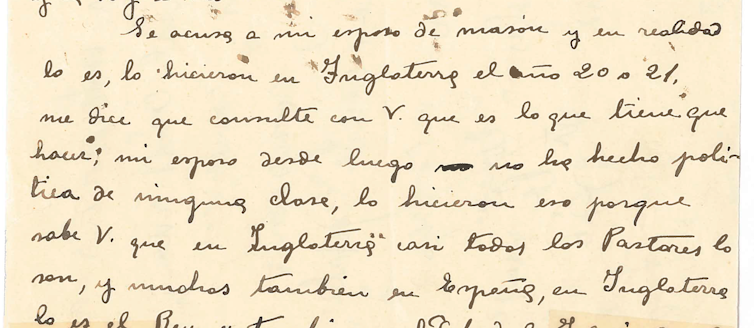 Se acusa a mi esposo de masón y en realidad
lo es, lo hicieron en Inglaterra el año 20 o 21,
me dice que consulte con V. que es lo que tiene que
hacer; mi esposo desde luego no ha hecho polí-
tica de ninguna clase, lo hicieron eso porque
sabe V. que en Inglaterra casi todos los Pastores lo
son, y muchos también en España, en Inglaterra
lo es el Rey